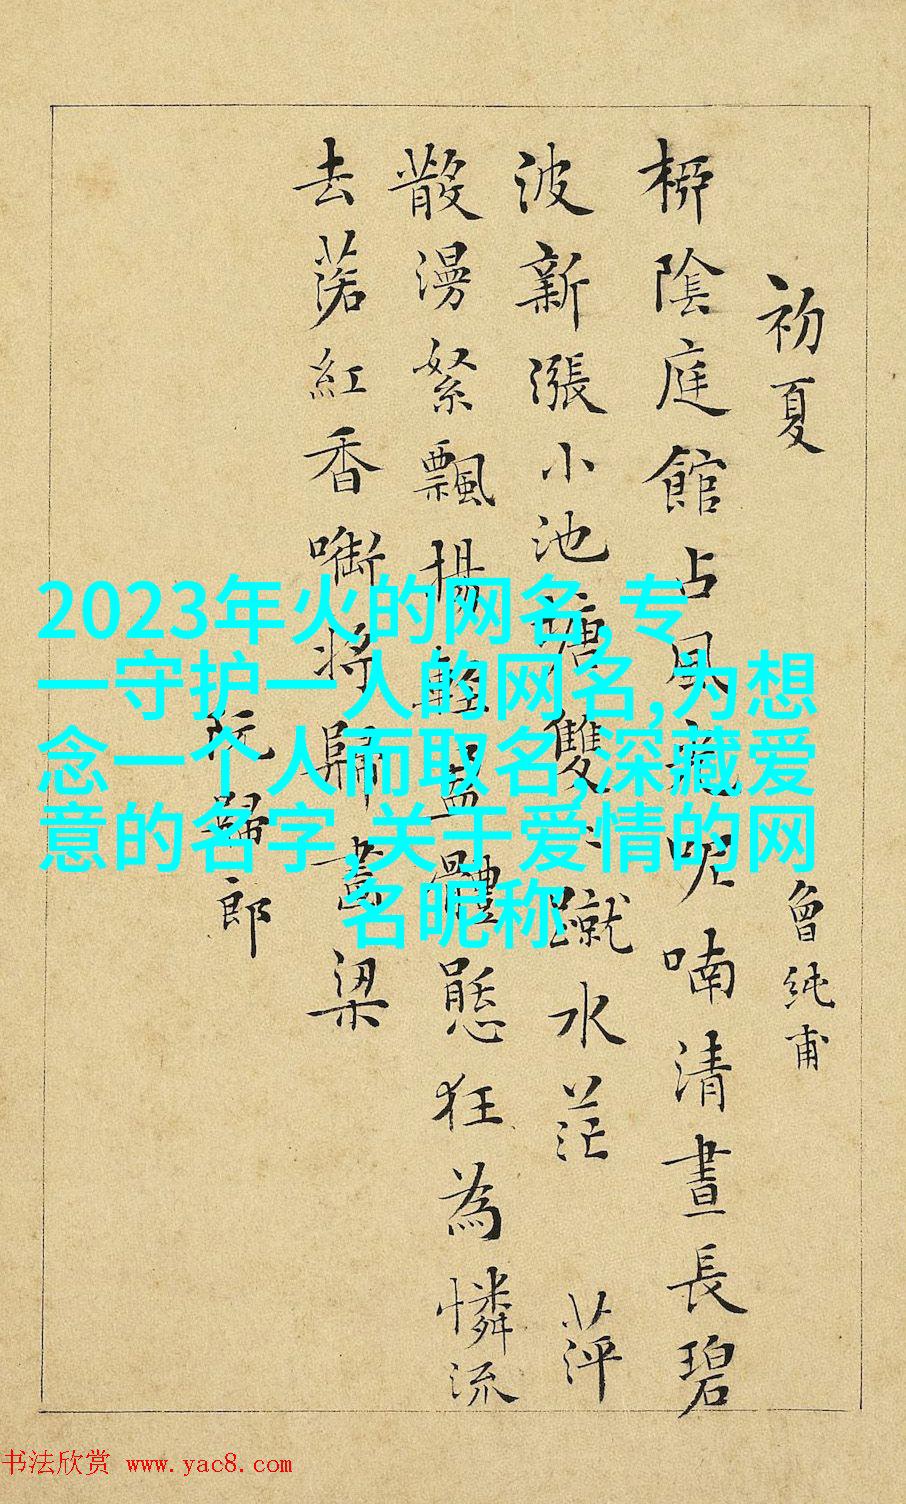 初夏
曾純甫
柳陰庭館占風呢喃清晝長碧
波新漲小池塘雙〻蹴水茫萍
散漫絮飄揚輕盈體態狂為憐流
去落紅香啣將歸畫梁
阮歸郎
2023年火的网名,专
一守护一人的网名,为想
念一个人而取名,深藏爱
意的名字,关于爱情的网
名昵称
书法欣赏 www.yac8.com